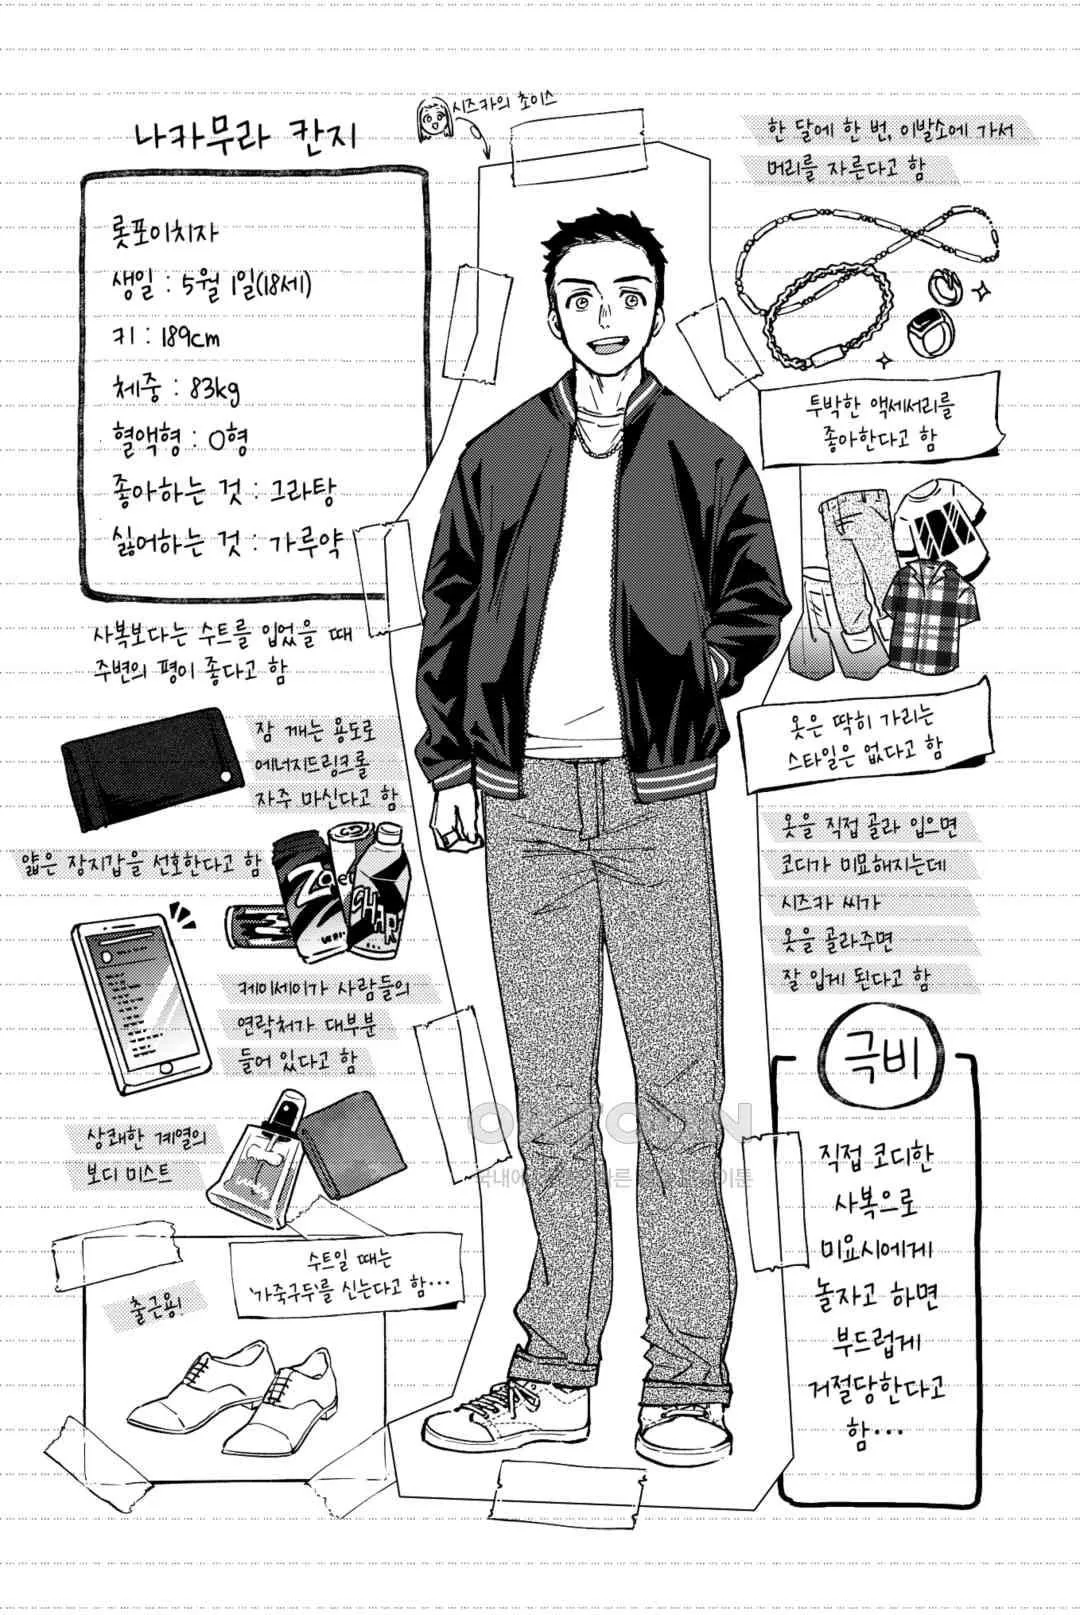 시즈카의 초이스
나카무라 칸지
롯포이치자
생일 : 5월 1일(18세)
키 : 189cm
체중 : 83kg
혈액형 : O형
좋아하는 것 : 그라탕
싫어하는 것 : 가루약
한 달에 한 번, 이발소에 가서
머리를 자른다고 함
투박한 액세서리를
좋아한다고 함
사복보다는 수트를 입었을 때
주변의 평이 좋다고 함
옷은 딱히 가리는
스타일은 없다고 함
잠 깨는 용도로
에너지드링크를
자주 마신다고 함
얇은 장지갑을 선호한다고 함
옷을 직접 골라 입으면
코디가 미묘해지는데
시즈카 씨가
옷을 골라주면
잘 입게 된다고 함
케이세이가 사람들의
연락처가 대부분
들어 있다고 함
상쾌한 계열의
보디 미스트
수트일 때는
'가죽구두'를 신는다고 함…
출근용!
극비
직접 코디한
사복으로
미요시에게
놀자고 하면
부드럽게
거절당한다고
함…